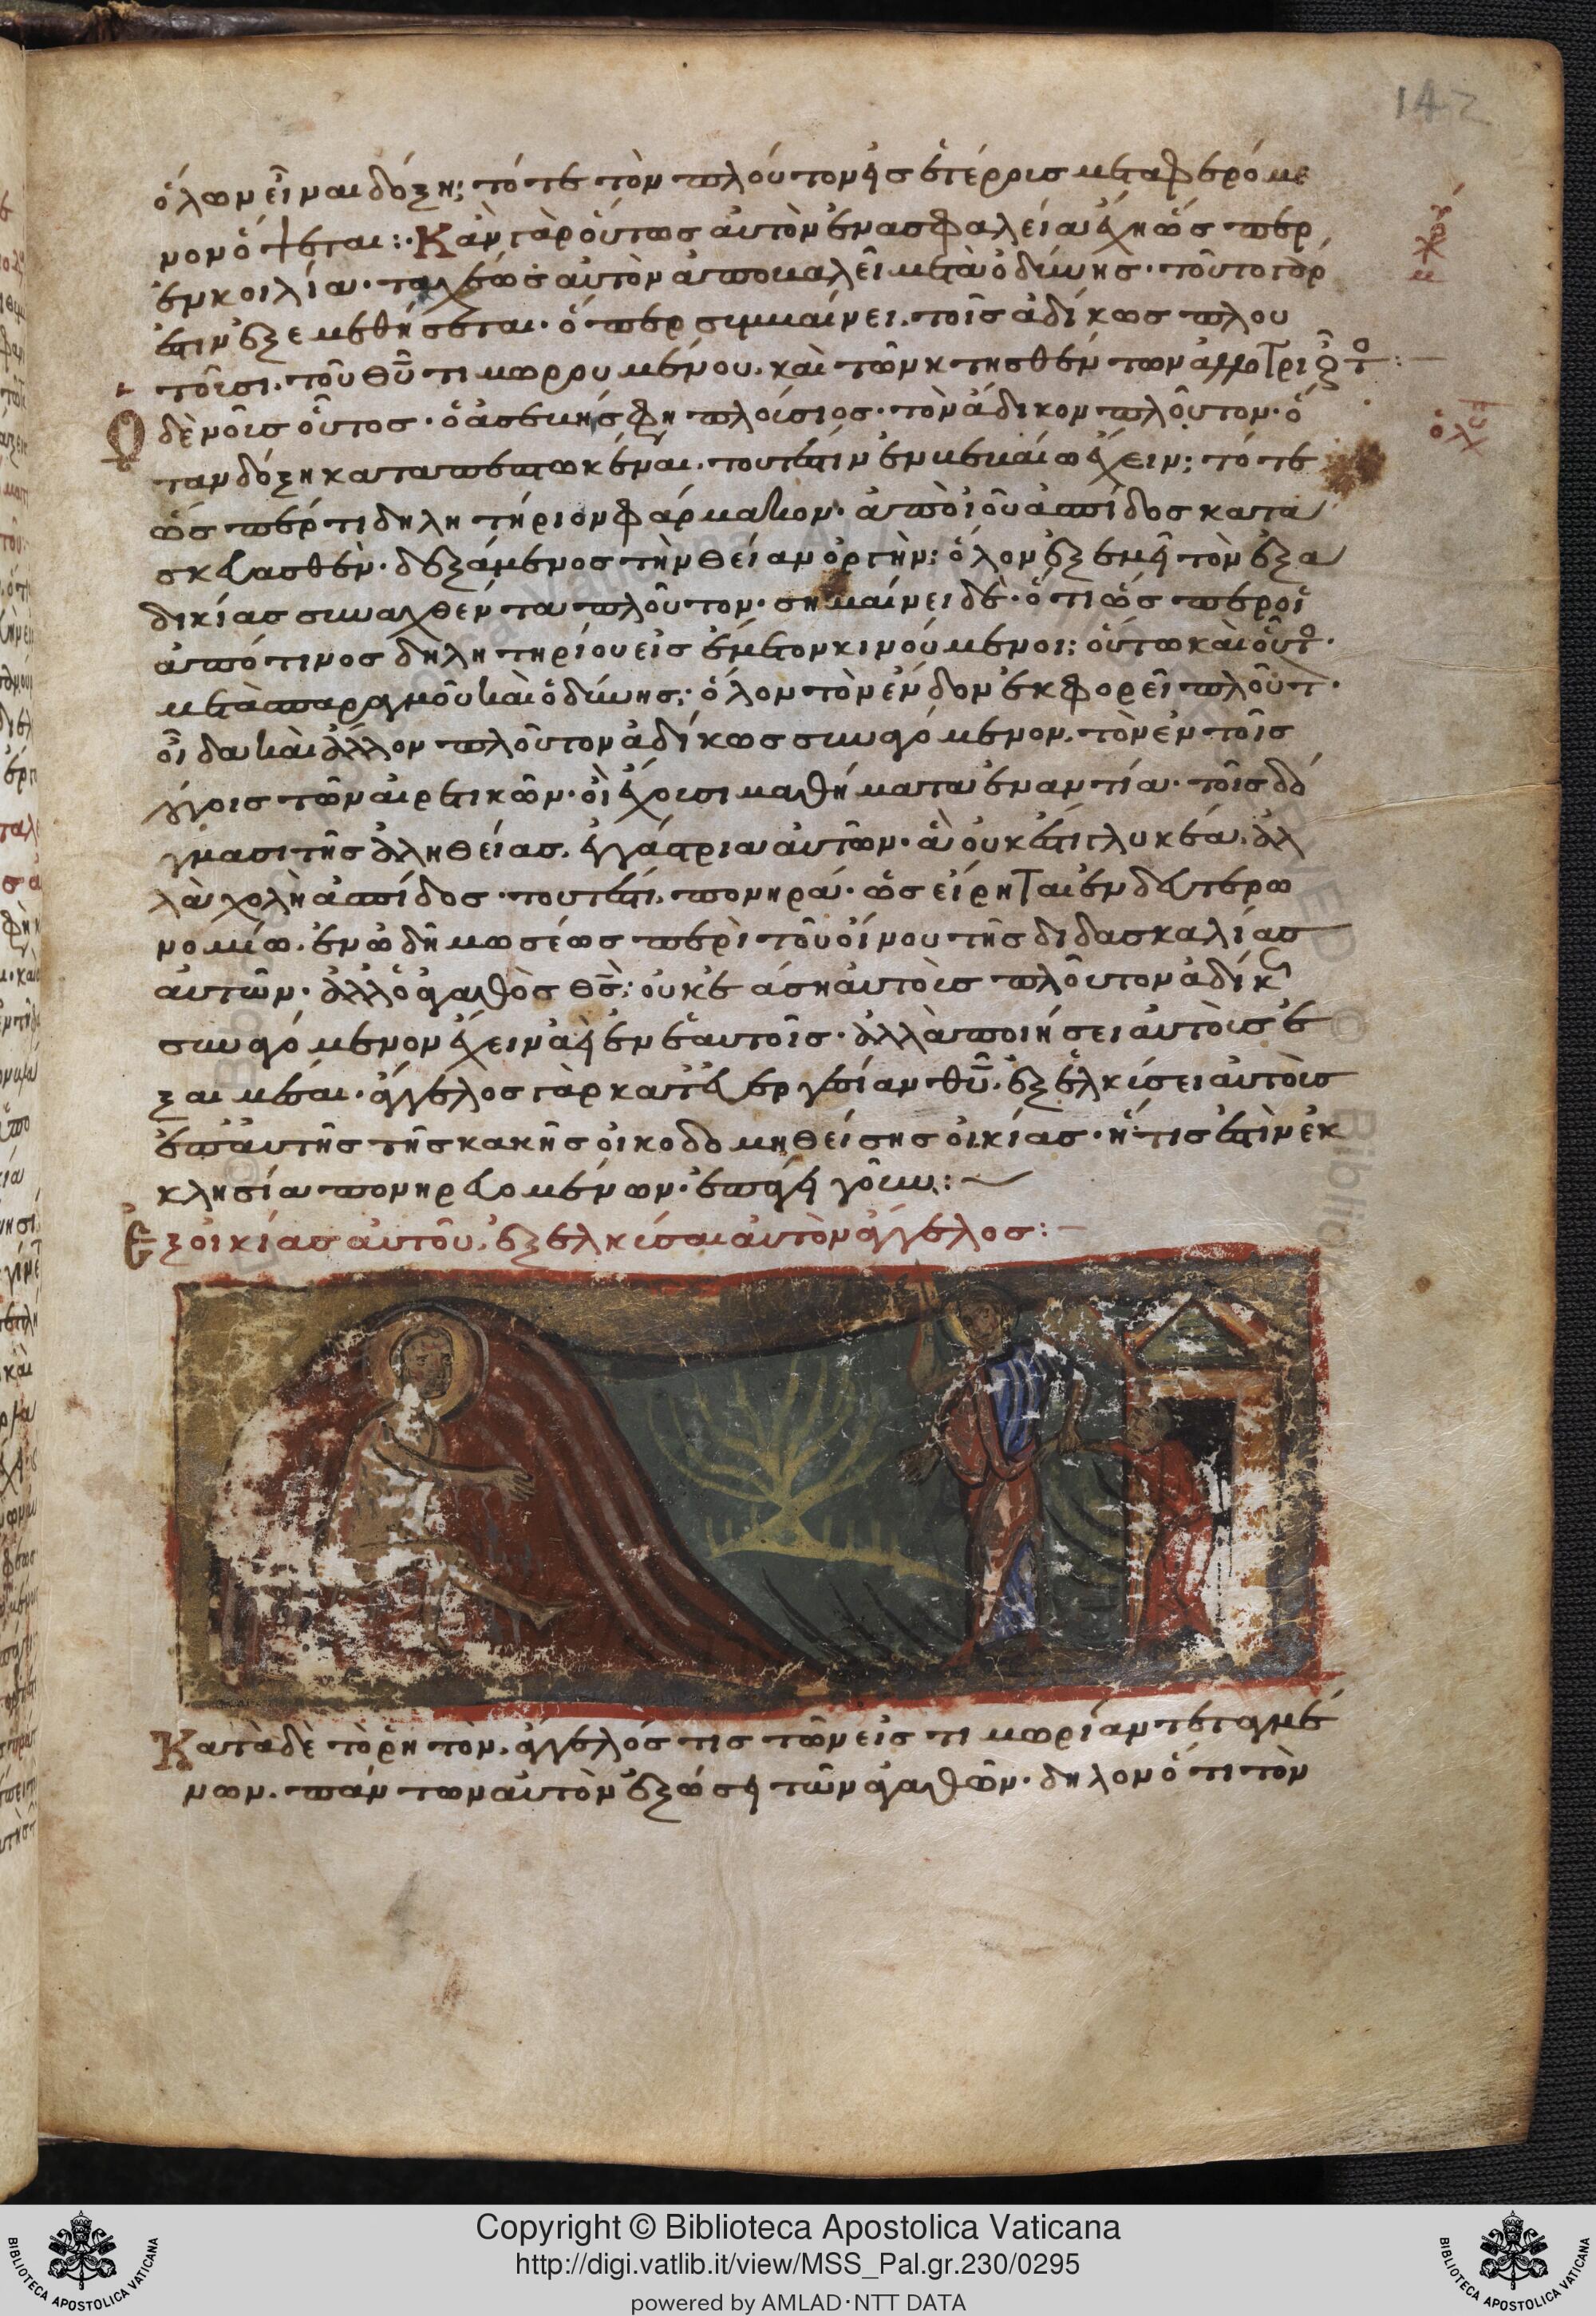 142
ὅλων εἶναι δόξη; τότε τὸν πλοῦτον εἰς ἑτέρους μεταφερόμε
νον ὄψεται:· Κἂν γὰρ οὕτως αὐτὸν ἐν ἀσφαλείαι ἔχη ὥσπερ
ἐν κοιλίαι· ταχέως αὐτὸν ἀποκαλεῖ μετὰ ὀδύνης· τοῦτο γάρ
ἐστιν ἐξεμεθήσεται· ὅπερ συμβαίνει τοῖς ἀδίκως πλου
τοῦσι· τοῦ θῦ τιμωρουμένου· καὶ τῶν κτηθέντων ἀλλοτρι
Ὁ δὲ νοῦς οὗτος· ὁ ἀσεβὴς φη πλούσιος· τὸν ἄδικον πλοῦτον· ὅ
ταν δόξη καταπεπωκέναι· τουτέστιν ἐν βεβαίω ἔχειν; τότε
ὥσπερ τι δηλητήριον φάρμακον· ἀπὸ ἰοῦ ἀσπίδος κατα
σκευασθὲν· δεξάμενος τὴν θείαν ὀργὴν; ὅλον ἐξεμεῖ τὸν ἐξ ἀ
δικίας συναχθέντα πλοῦτον· σημαίνει δὲ· ὅτι ὥσπερ οἱ
ἀπό τινος δηλητηρίου εἰς ἔμετον κινούμενοι; οὕτω καὶ οὗτ
μετὰ σπαραγμοῦ καὶ ὀδύνης; ὅλον τὸν ἔνδον ἐκφορεῖ πλοῦτ
οἶδα καὶ ἄλλον πλοῦτον ἀδίκως συναγόμενον· τὸν ἐν τοῖς
λόγοις τῶν αἱρετικῶν· οἳ ἔχουσι μαθήματα ἐναντία· τοῖς δό
γμασι τῆς ἀληθείας· ἐγγάστρια αὐτῶν· ἃ οὐκ ἔστι γλυκέα· ἀλ
λὰ χολὴ ἀσπίδος· τουτέστι πονηρά· ὡς εἴρηται ἐν δευτερο
νομίω· ἐν ὠδῆ μωσέως περὶ τοῦ οἴνου τῆς διδασκαλίας
αὐτῶν· ἀλλ' ὁ ἀγαθὸς θς; οὐκ ἐάση αὐτοὺς πλοῦτον ἀδίκ
συναγόμενον ἔχειν ἀεὶ ἐν ἑαυτοῖς· ἀλλὰ ποιήσει αὐτοὺς ἐ
ξαιμέσαι· ἄγγελος γὰρ κατ' εὐεργεσίαν θῦ· ἐξελκύσει αὐτοὺς
ἐπ' αὐτῆς τῆς κακῆς οἰκοδομηθείσης οἰκίας· ἥτις ἐστὶν ἐκ
κλησία πονηρευομένων· ἐπάγει γοῦν:
Ἐξ οἰκίας αὐτοῦ ἐξελκύσαι αὐτὸν ἄγγελος:
Κατὰ δὲ τὸ ῥητὸν· ἄγγελός τις τῶν εἰς τιμωρίαν τεταγμέ
νων· πάντων αὐτὸν ἐξώσει τῶν ἀγαθῶν· δηλονότι τὸν
Copyright © Biblioteca Apostolica Vaticana
http://digi.vatlib.it/view/MSS_Pal.gr.230/0295
powered by AMLAD·NTT DATA
BIBLIOTECA APOSTOLICA VATICANA
BIBLIOTECA APOSTOLICA VATICANA